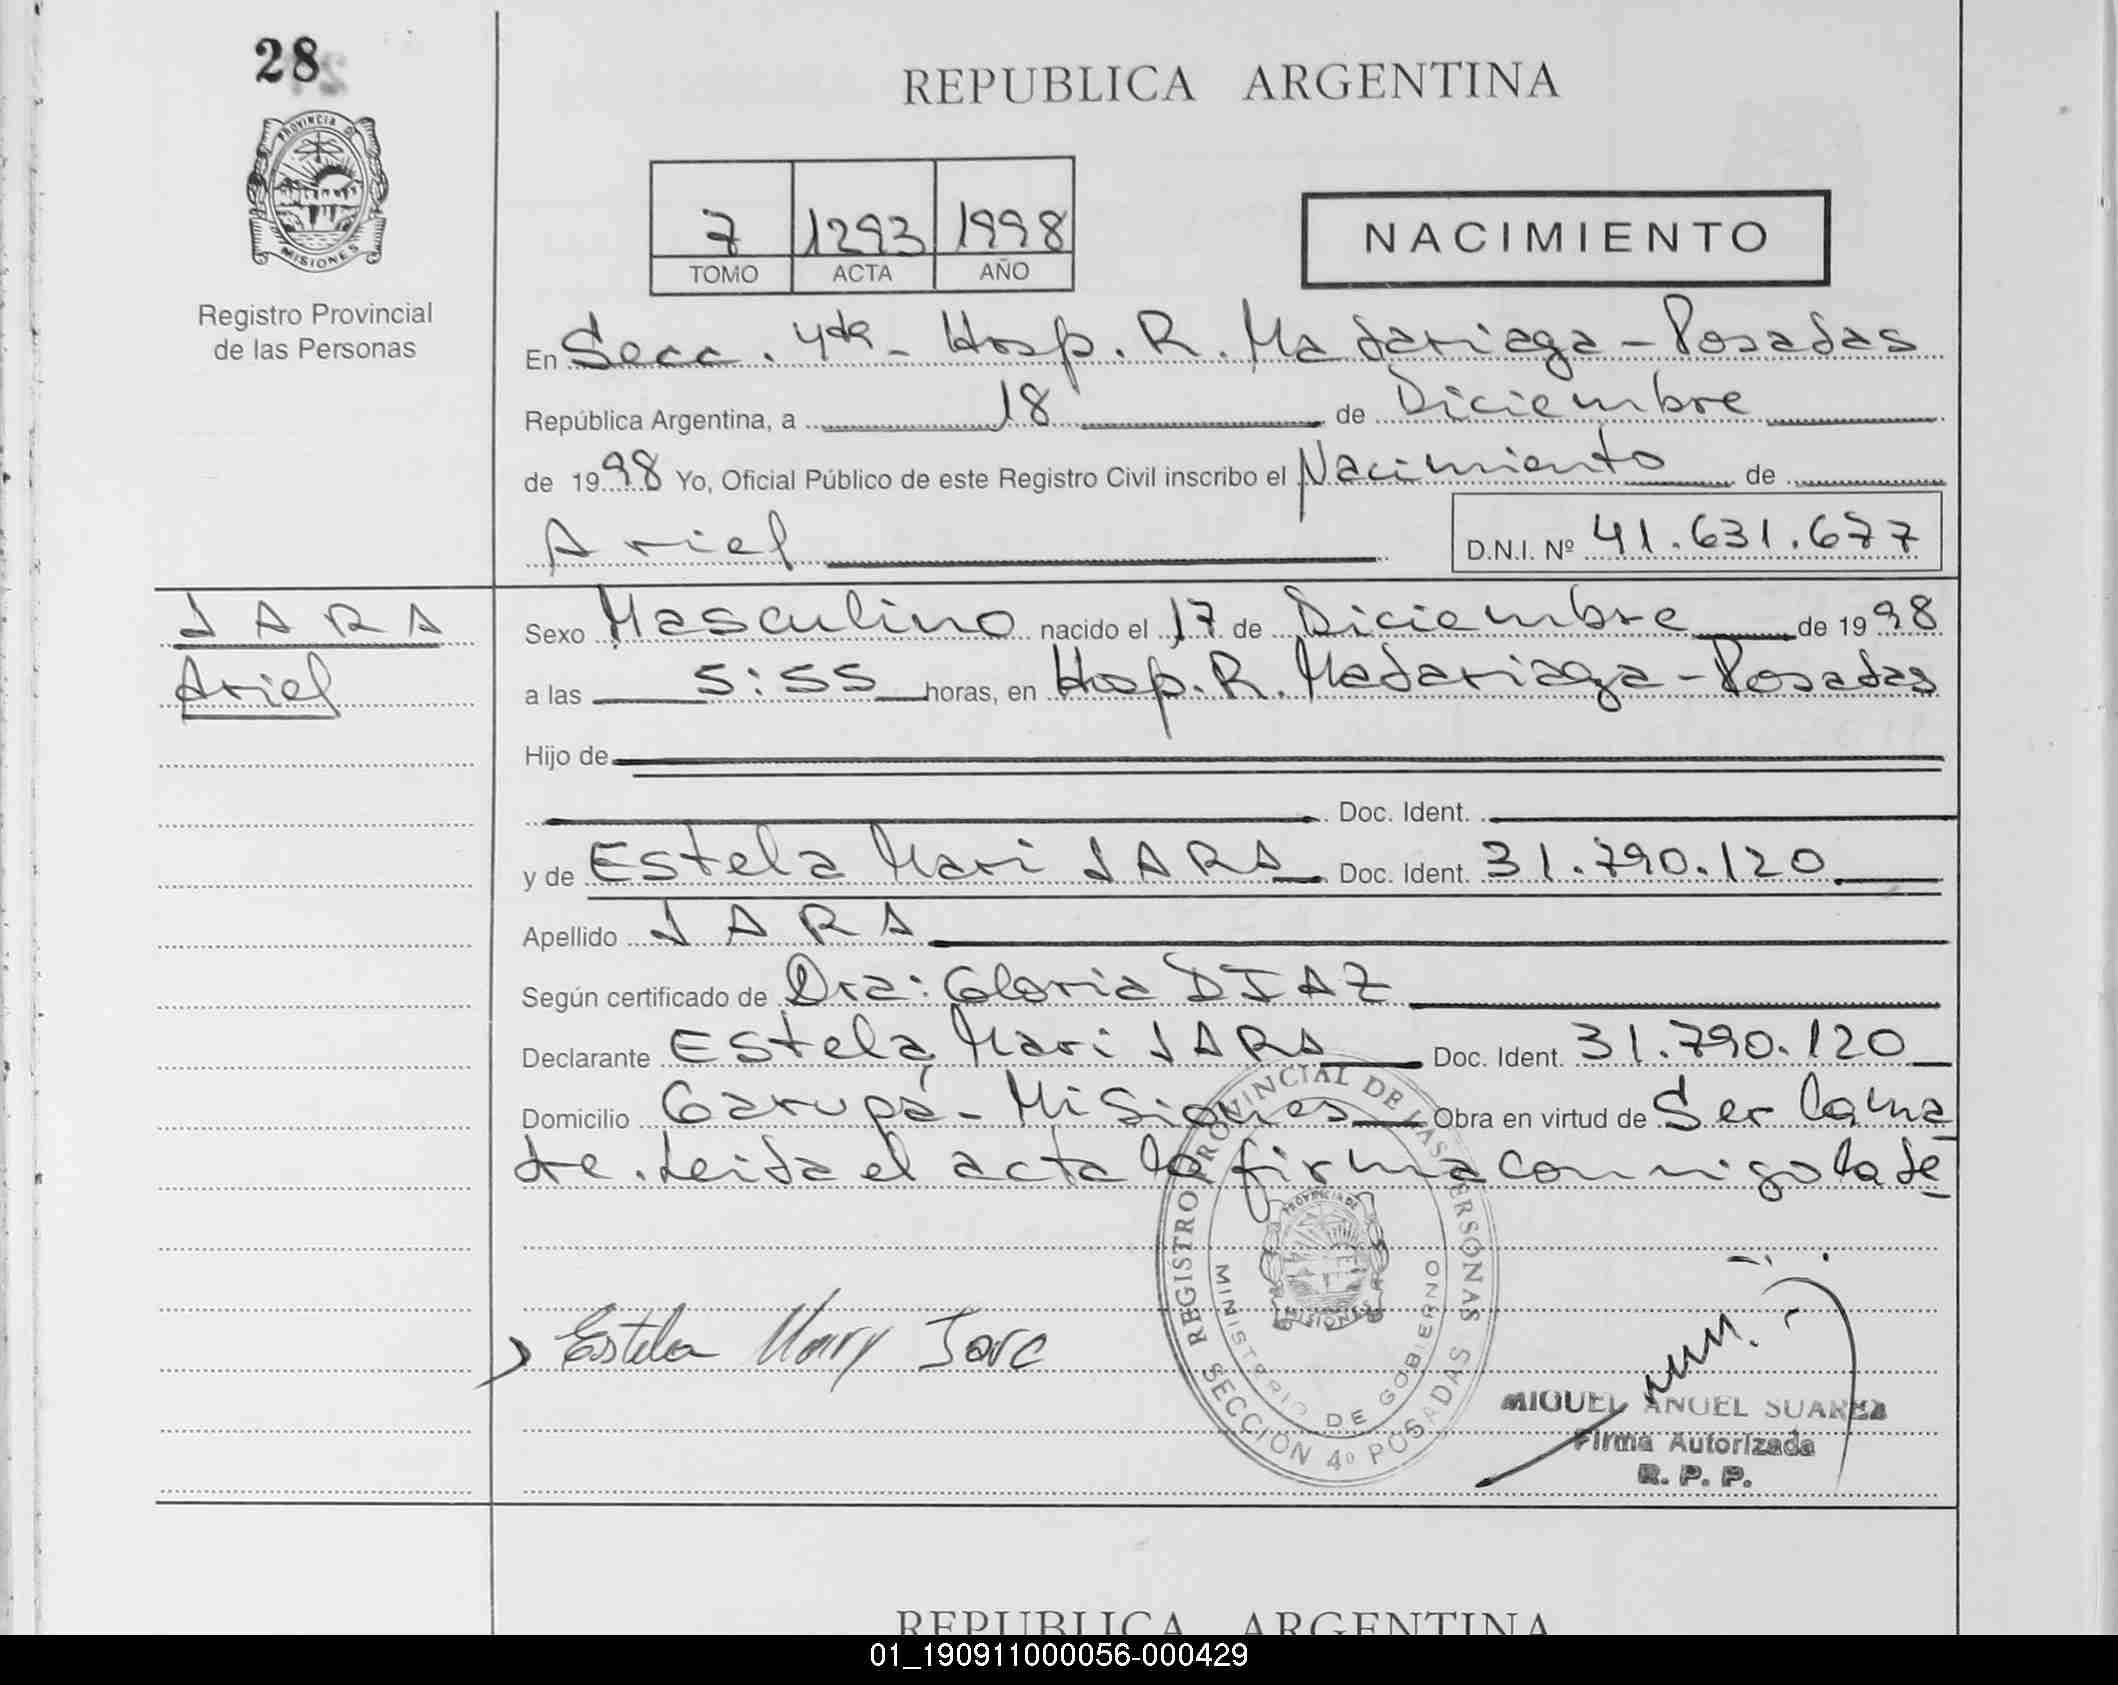 28
REPUBLICA ARGENTINA
PROVINCIA DE
MISIONES
Registro Provincial
de las Personas
7 1293 1998
TOMO ACTA AÑO
NACIMIENTO
En Secc. 4ta - Hosp. R. Madariaga - Posadas
República Argentina, a 18 de Diciembre
de 1998 Yo, Oficial Público de este Registro Civil inscribo el Nacimiento de
Ariel D.N.I. Nº 41.631.677
JARA
Ariel
Sexo Masculino nacido el 17 de Diciembre de 1998
a las 5:55 horas, en Hosp. R. Madariaga - Posadas
Hijo de
Doc. Ident.
y de Estela Mari JARA Doc. Ident. 31.790.120
Apellido JARA
Según certificado de Dra: Gloria DIAZ
Declarante Estela Mari JARA Doc. Ident. 31.790.120
Domicilio Garupá - Misiones Obra en virtud de Ser la ma
dre. Leida el acta la firma conmigo la de
REGISTRO PROVINCIAL DE LAS PERSONAS
MINISTERIO DE GOBIERNO
PROVINCIA DE
MISIONES
SECCIÓN 4º POSADAS
Estela Mary Jara
MIGUEL ANGEL SUAREZ
Firma Autorizada
R. P. P.
REPUBLICA ARGENTINA
01_190911000056-000429